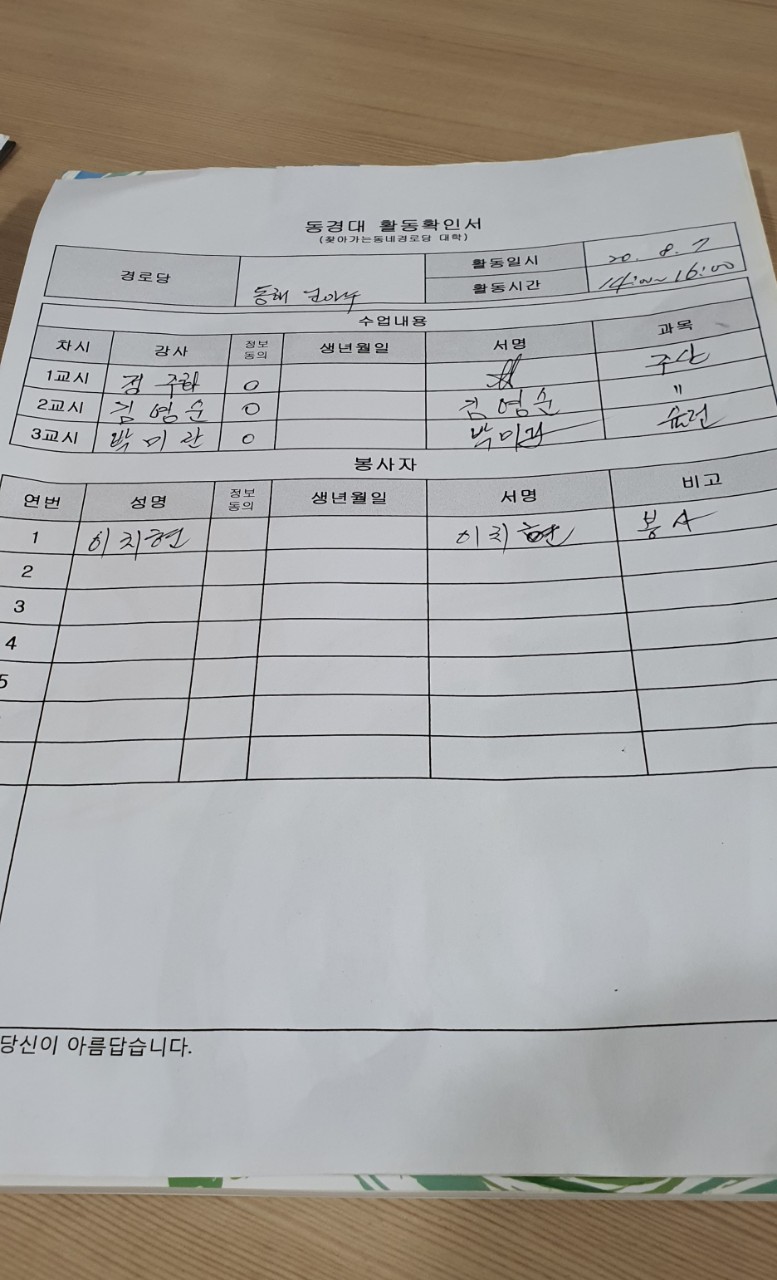 동경대 활동확인서
(찾아가는동네경로당 대학)
경로당 동해 활동일시 20. 8. 7
활동시간 14:00~16:00
수업내용
차시 강사 정보동의 생년월일 서명 과목
1교시 정 주하 O 주산
2교시 김영순 O 김영순 〃
3교시 박미란 O 박미란
봉사자
연번 성명 정보동의 생년월일 서명 비고
1 이치현 이치현 봉사
2
3
4
5
당신이 아름답습니다.